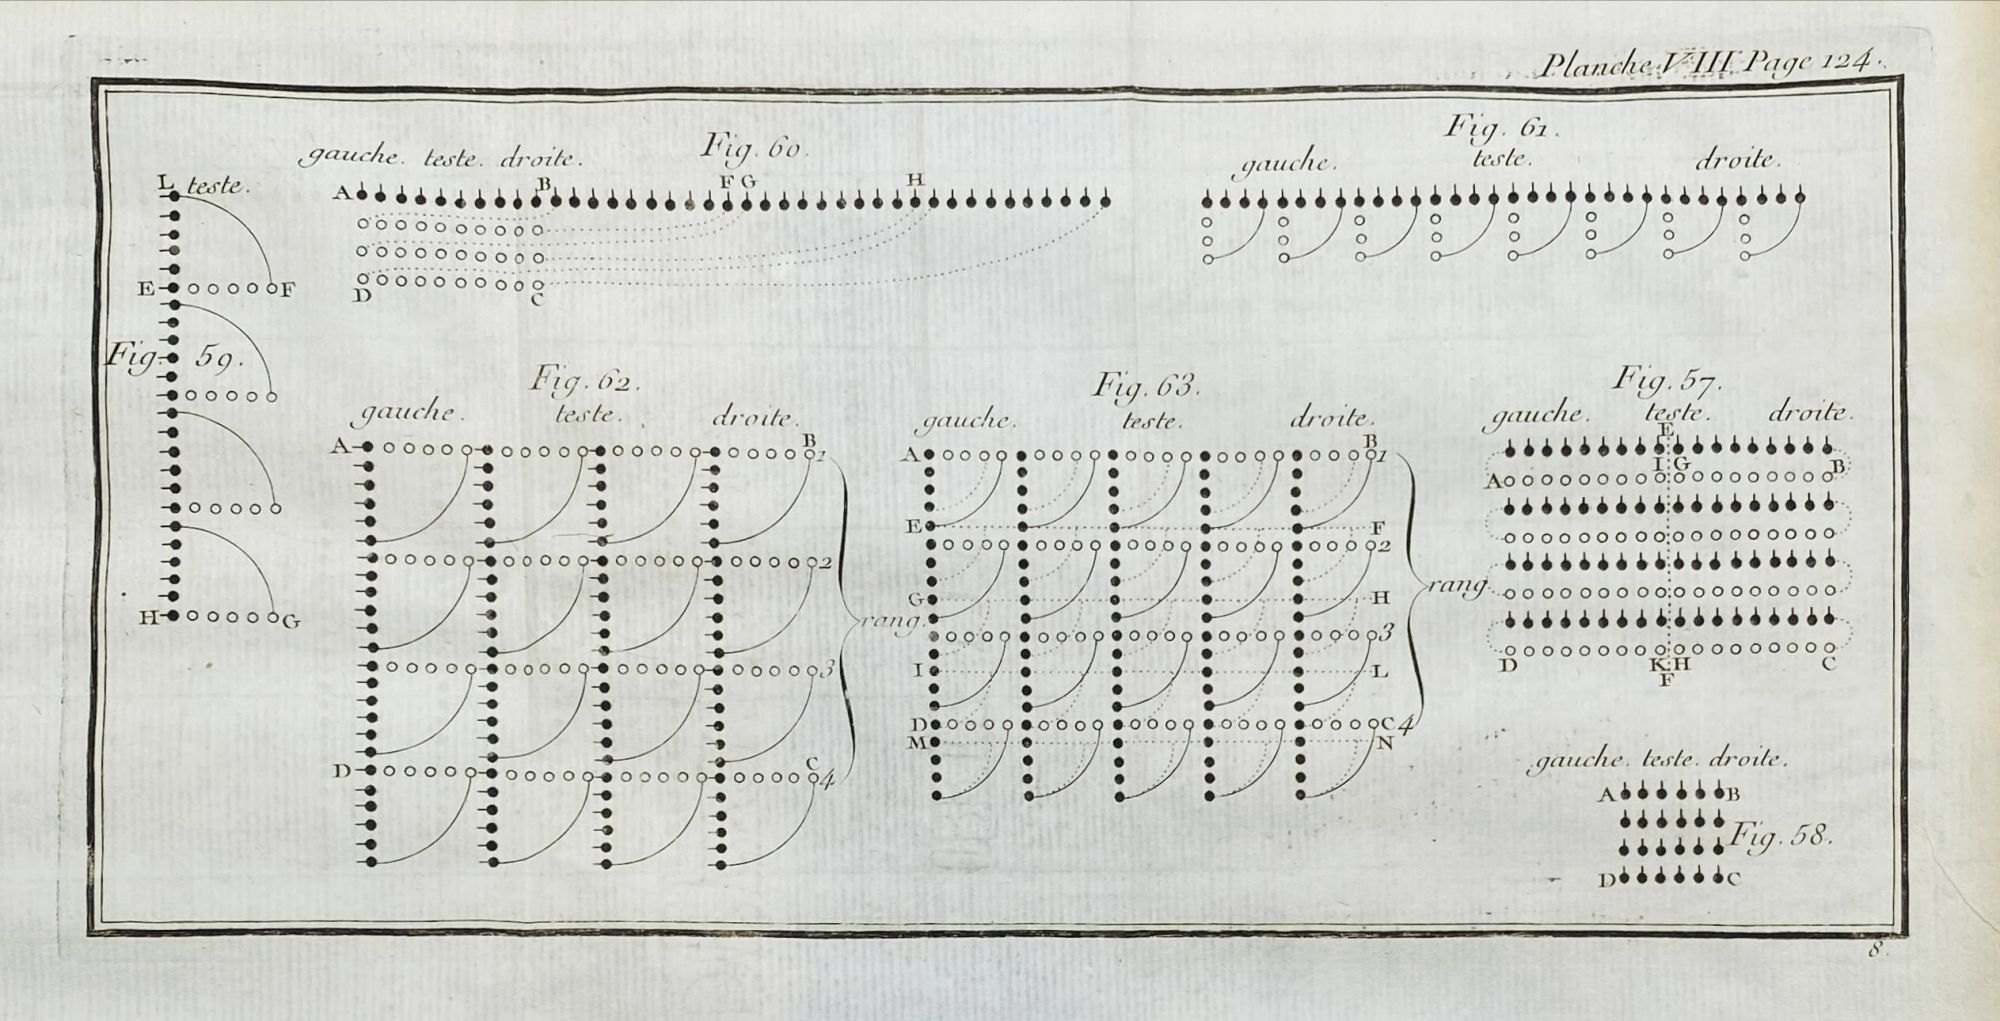 Planche VIII Page 124.
Fig. 60.
gauche. teste. droite.
A B F G H
D C
Fig. 61.
gauche. teste. droite.
L teste.
E F
Fig. 59.
H G
Fig. 62.
gauche. teste. droite.
A B 1
2
rang.
3
D C 4
Fig. 63.
gauche. teste. droite.
A B 1
E F
2
rang
G H
3
I L
D C 4
M N
Fig. 57.
gauche. teste. droite.
E
I G B
A
D K H C
F
gauche. teste. droite.
A B
Fig. 58.
D C
8